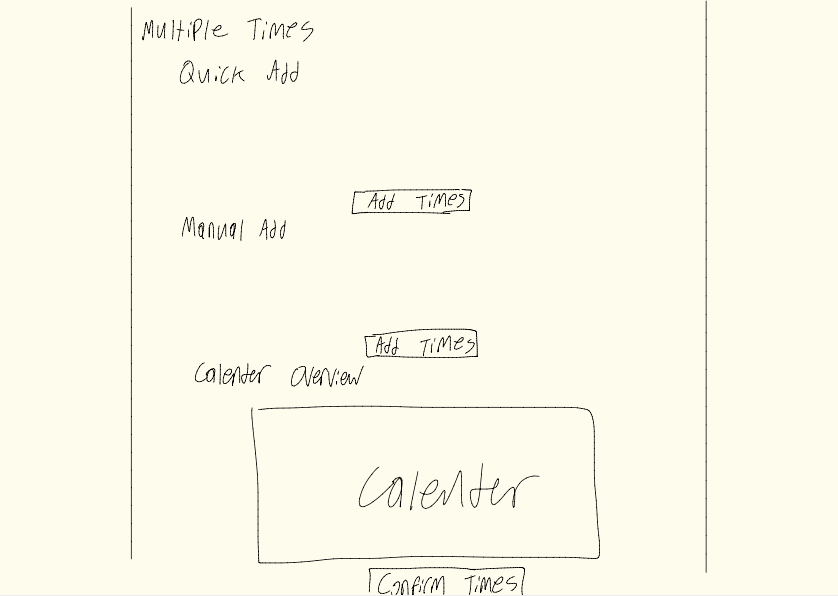 Multiple Times
Quick Add
Add Times
Manual Add
Add Times
Calenter Overview
Calenter
Confirm Times